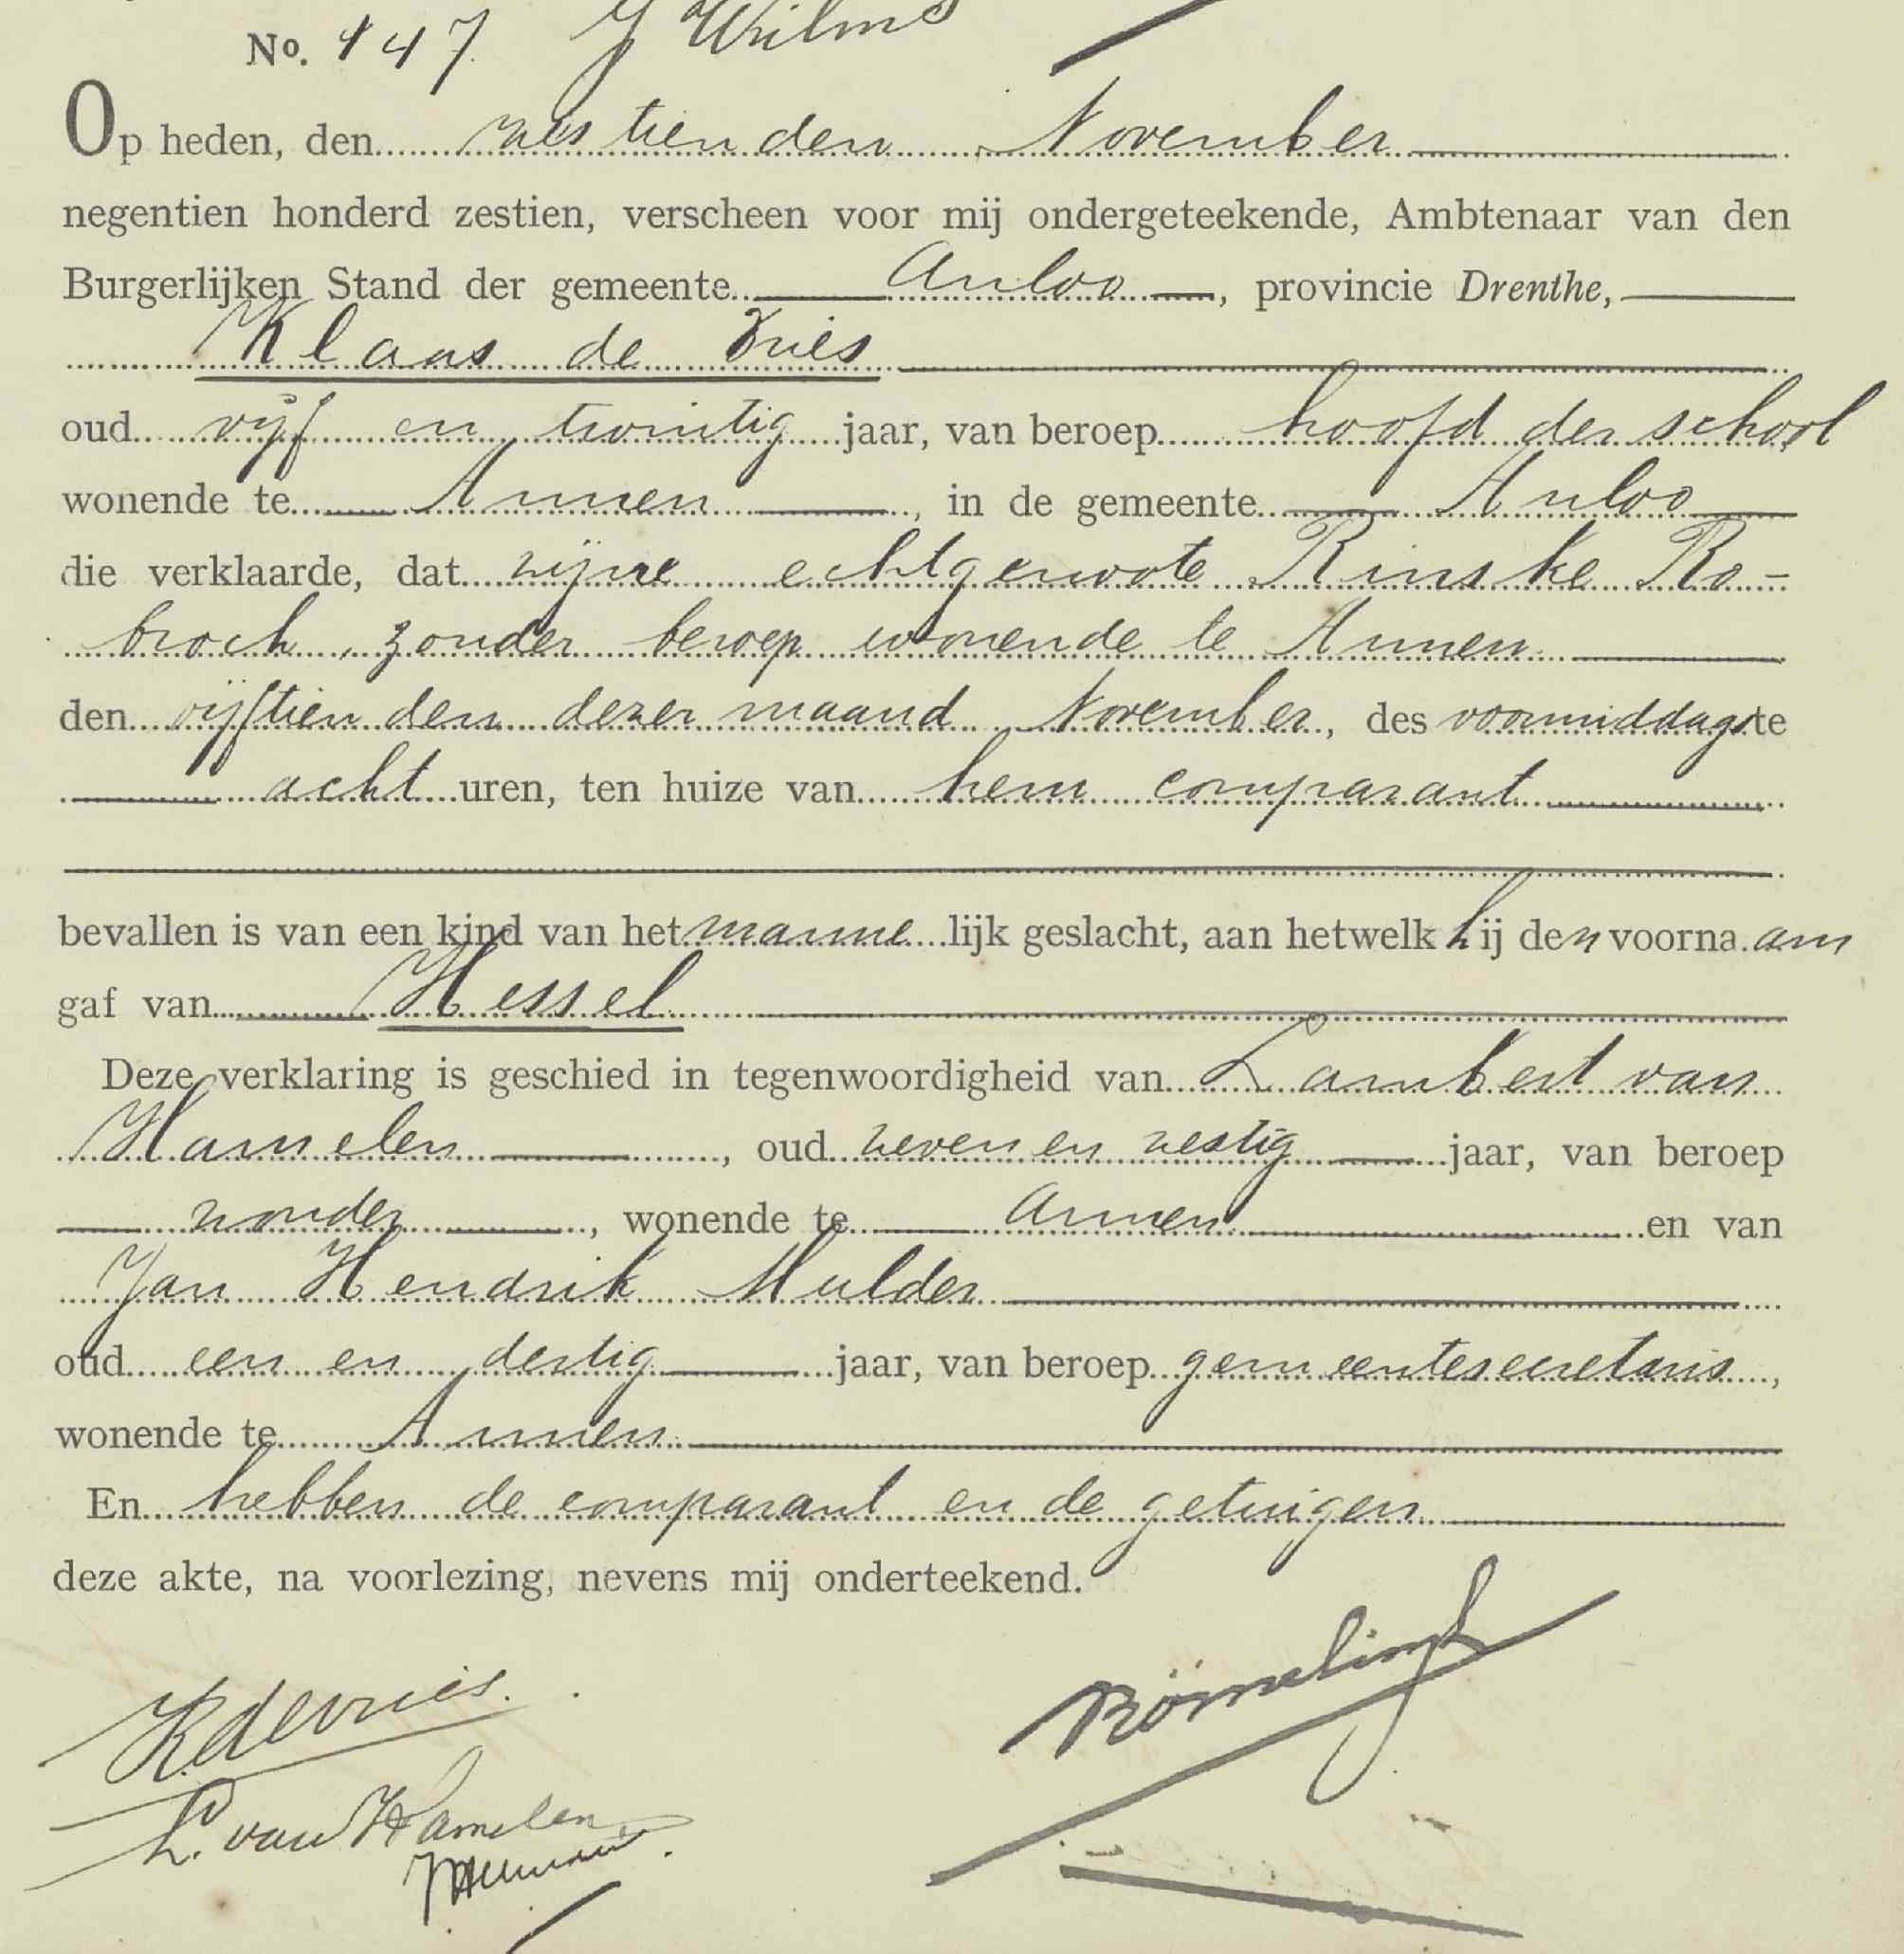 No. 147. J Wilms
Op heden, den zestienden November
negentien honderd zestien, verscheen voor mij ondergeteekende, Ambtenaar van den
Burgerlijken Stand der gemeente Anloo, provincie Drenthe,
Klaas de Vries
oud vijf en twintig jaar, van beroep hoofd der school
wonende te Annen, in de gemeente Anloo
die verklaarde, dat zijne echtgenoote Rinske Ro-
broch, zonder beroep wonende te Annen
den vijftienden dezer maand November, des voormiddags te
acht uren, ten huize van hem comparant
bevallen is van een kind van het mannelijk geslacht, aan hetwelk hij den voornaam
gaf van Hessel
Deze verklaring is geschied in tegenwoordigheid van Lambert van
Hamelen, oud zeven en zestig jaar, van beroep
zonder, wonende te Annen en van
Jan Hendrik Mulder
oud een en dertig jaar, van beroep gemeentesecretaris,
wonende te Annen
En hebben de comparant en de getuigen
deze akte, na voorlezing, nevens mij onderteekend.
K de Vries.
Römelingh
L. van Hamelen